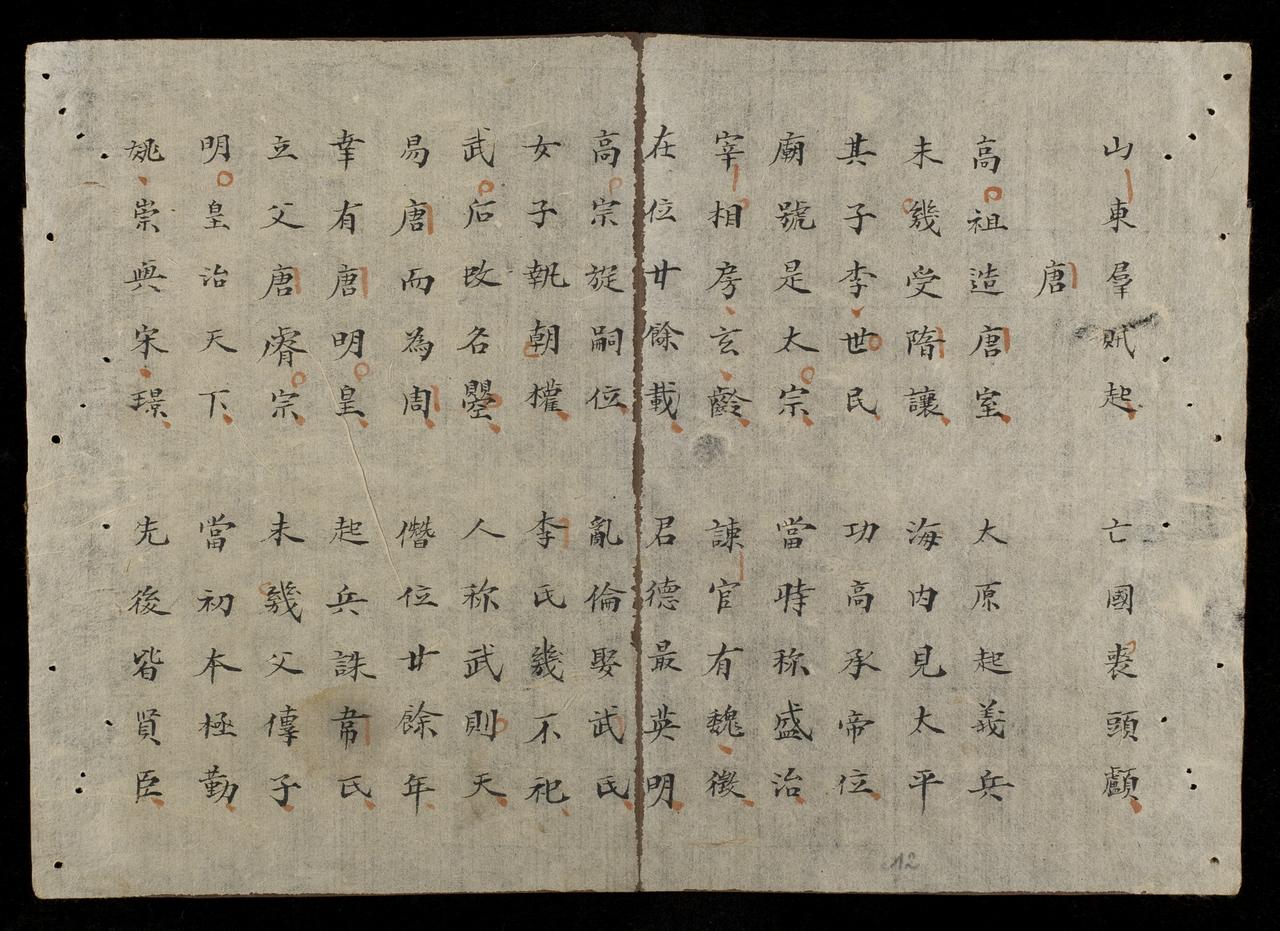 山東羣賊起 亡國喪頭顱
唐
高祖造唐室 太原起義兵
未幾受隋讓 海内見太平
其子李世民 功高承帝位
廟號是太宗 當時称盛治
宰相房玄齡 諫官有魏徴
在位廿餘載 君德最英明
高宗旋嗣位 亂倫娶武氏
女子執朝權 李氏幾不祀
武后改名曌 人称武則天
易唐而為周 僭位廿餘年
幸有唐明皇 起兵誅韋氏
立父唐睿宗 未幾父傳子
明皇治天下 當初本極勤
姚崇與宋璟 先後皆賢臣
12